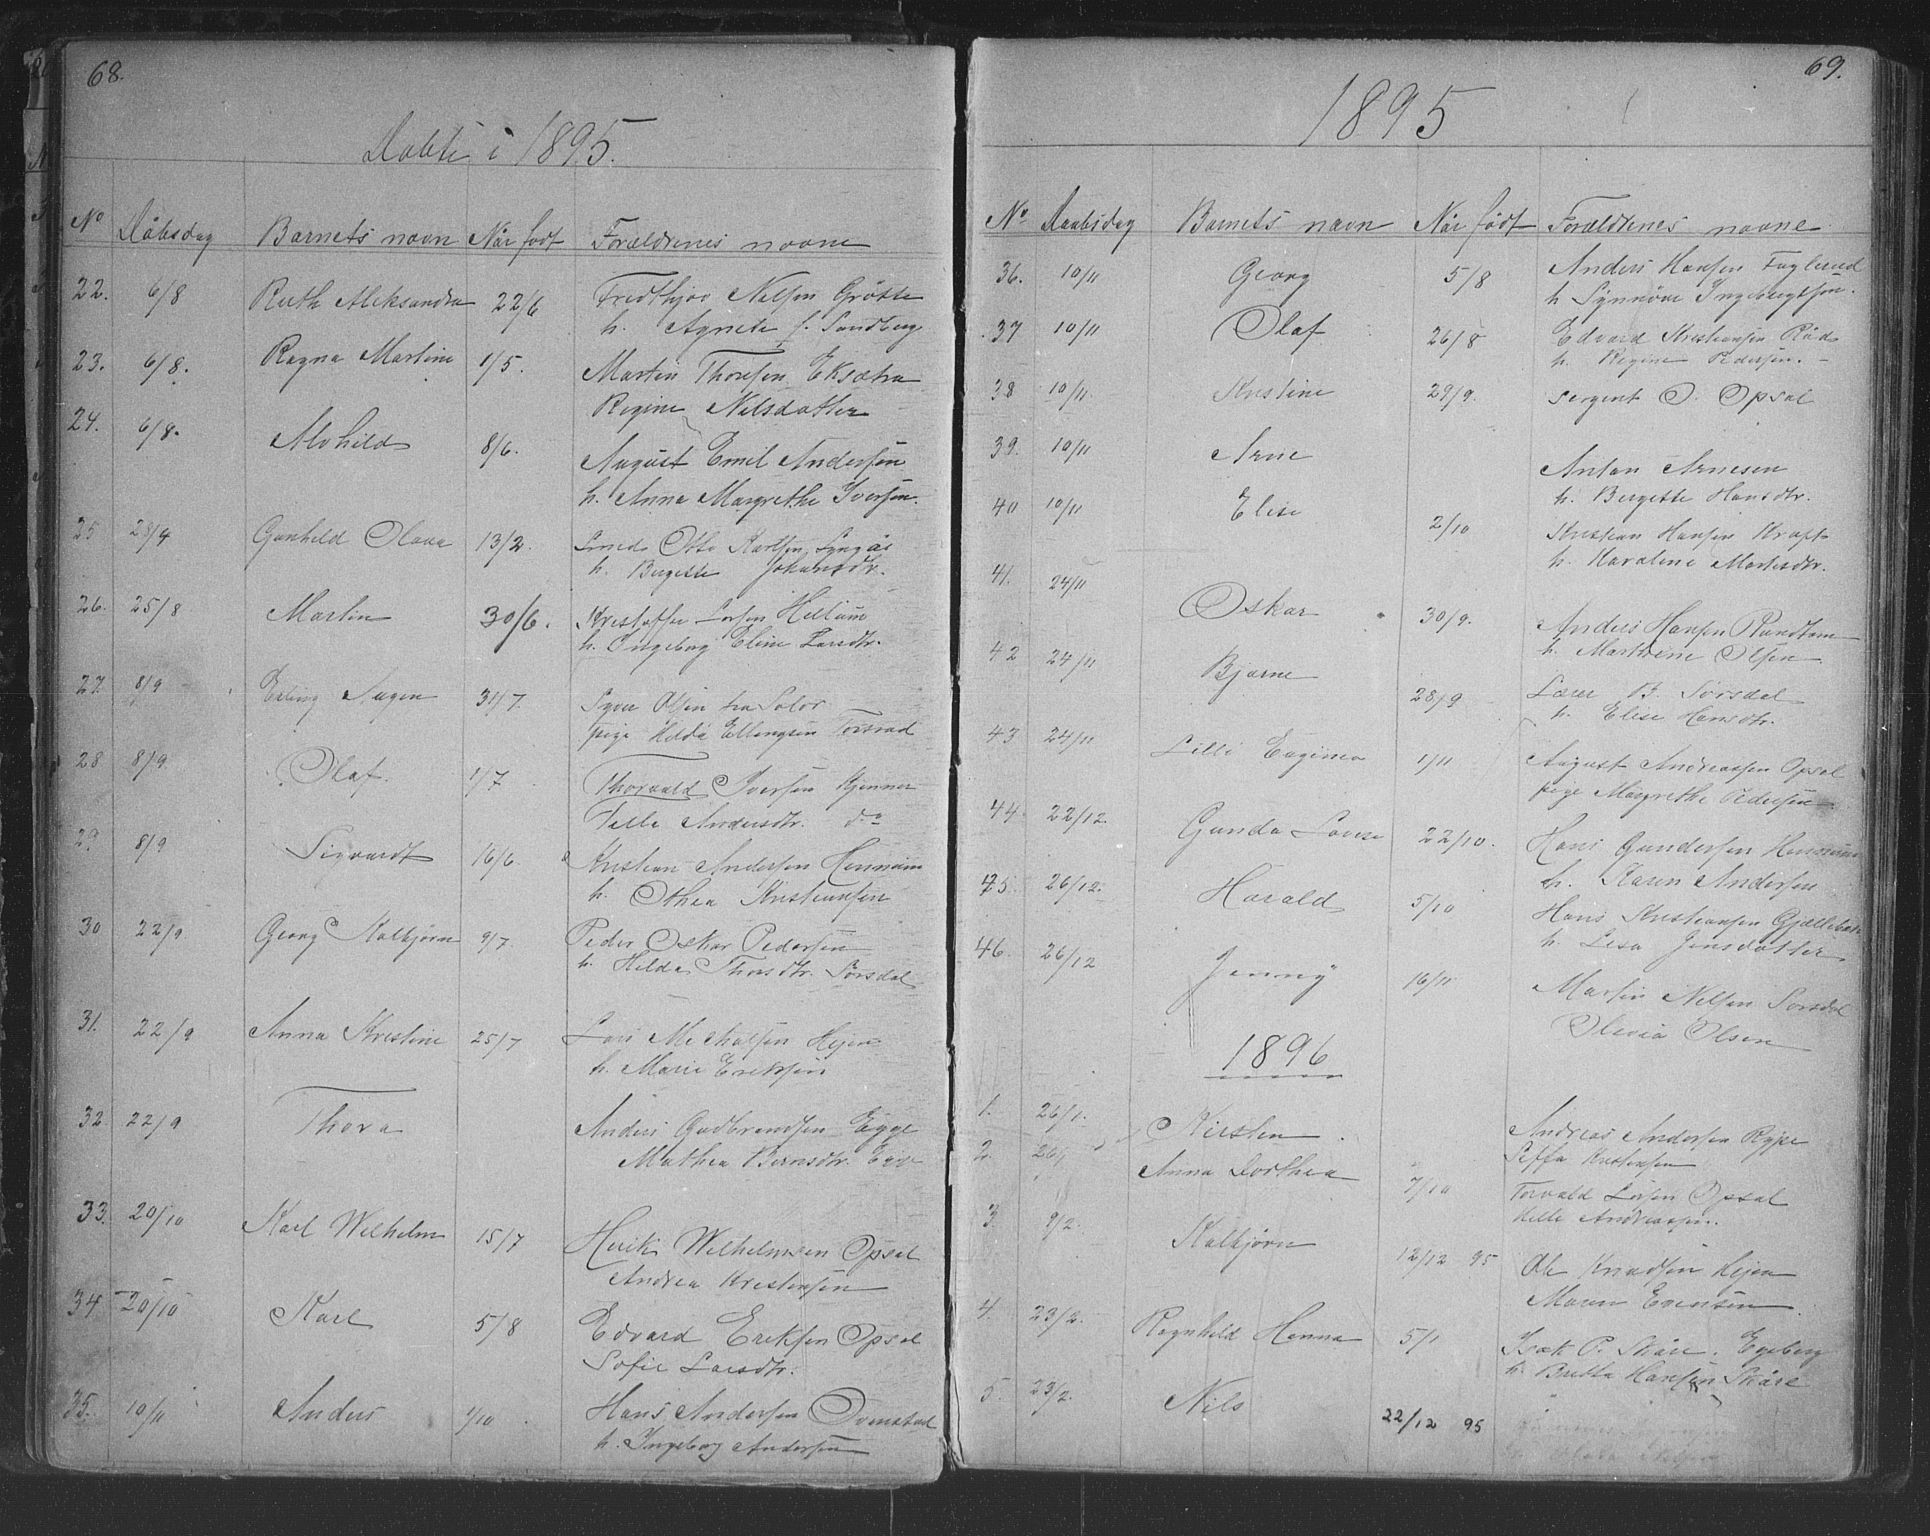 68.
Døbte i 1895.
No Dåbsdag Barnets navn Når født Forældrenes navne
22. 6/8 Ruth Aleksandra 22/6 Fredthjov Nelsen Grøtte
h. Agnete f. Sandberg
23. 6/8. Ragna Martine 1/5. Martin Thoresen Eksætra
Regine Nilsdatter
24. 6/8. Alvhild 8/6. August Emil Andersen
h. Anna Margrethe Iversen.
25 Gunhild Olava 13/2. Smed Otto Karlsen
h. Bergette Johansdtr.
26. 25/8 Martin 30/6. Kristoffer Larsen Hellum
h. Ingeborg Eline Larsdtr.
27. 8/9 Erling Hagen 31/7. Syver Olsen fra Solør
pige Hilda Ellingsen
28 8/9. Olaf. 1/7 Thorvald Iversen Kjenner
Andersdtr. do
29 8/9 Sigvardt 16/6. Kristian Andersen
h. Othea Kristiansen
30 22/9 Georg Kolbjørn 9/7. Peder Oskar Pedersen
h. Hilda Thorsdtr. Sørsdal
31. 22/9 Anna Kristine 25/7 Lars Michalsen Hejen
h. Marie Eriksen
32 22/9 Thora Anders Gudbrandsen Egge
Mathea Berntsdtr. Egge
33. 20/10 Karl Wilhelm 15/7 Henrik Wilhelmsen Opsal
Andrea Kristensen
34. 20/10 Karl 5/8 Edvard Eriksen Opsal
Sofie Larsdtr.
35. 10/11 Anders 1/10 Hans Andersen
h. Ingeborg Andersen
69.
1895
No Daabsdag Barnets navn Når født Forældrenes navne
36. 10/11 Georg 5/8 Anders Hansen Fuglerud
h. Synnøve Ingebregtsen.
37 10/11 Olaf 26/8 Edvard Kristiansen Rød
h. Regine Pedersen.
38 10/11. Kristine 29/9. Sergent O. Opsal
39. 10/11 Arne Anton Arnesen
h. Bergette Hansdtr.
40 10/11 Elise 2/10 Kristian Hansen Kraft
h. Karoline
41. 24/11 Oskar 30/9. Anders Hansen
h. Olsen
42 24/11 Bjarne 28/9 Lærer B. Sørsdal
h. Elise Hansdtr.
43 24/11 Lilli Eugenia 1/11 August Andreassen Opsal
pige Margrethe Pedersen
44 22/12. Gunda Lovise 22/10. Hans Gundersen
h. Karen Andersen
45. 26/12. Harald 5/10 Hans Kristiansen
h. Lisa Jensdatter
46. 26/12 Jenny 16/11 Martin Nelsen Sørsdal
Olevia Olsen
1896
1. 26/1. Kirsten Andreas Andersen Rype
Kristensen
2. Anna Dorthea 7/10 Torvald Larsen Opsal
Andreassen.
3. 9/2. Kolbjørn 12/12 95 Ole Knudsen Hejen
Maren Evensen
4. 23/2. Ragnhild Hanna 5/1 Isak P. Skåre. Egeberg
h. Britta Hansen Skåre
5. 23/2. Nils 22/12 95